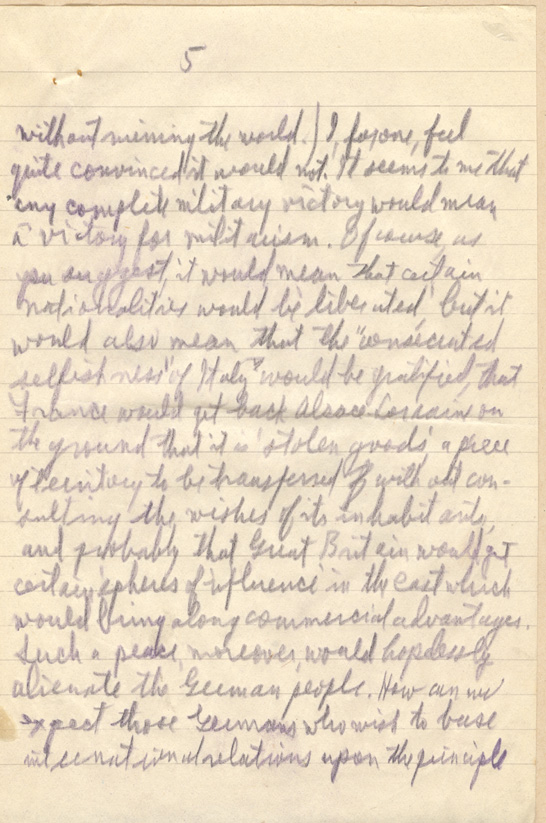 5
without ruining the world.) I, for one, feel
quite convinced it would not. It seems to me that
any complete military victory would mean
a victory for militarism. Of course, as
you suggest, it would mean that certain
nationalities would be liberated but it
would also mean that the "consecrated
selfishness" of Italy" would be gratified, that
France would get back Alsace-Lorrain on
the ground that it is 'stolen goods' a piece
of territory to be transferred with out con-
sulting the wishes of its inhabitants,
and probably that Great Britain would get
certain 'spheres of influence' in the East which
would bring along commercial advantages.
Such a peace, moreover, would hopelessly
alienate the German people. How can we
expect those Germans who wish to base
international relations upon the principle